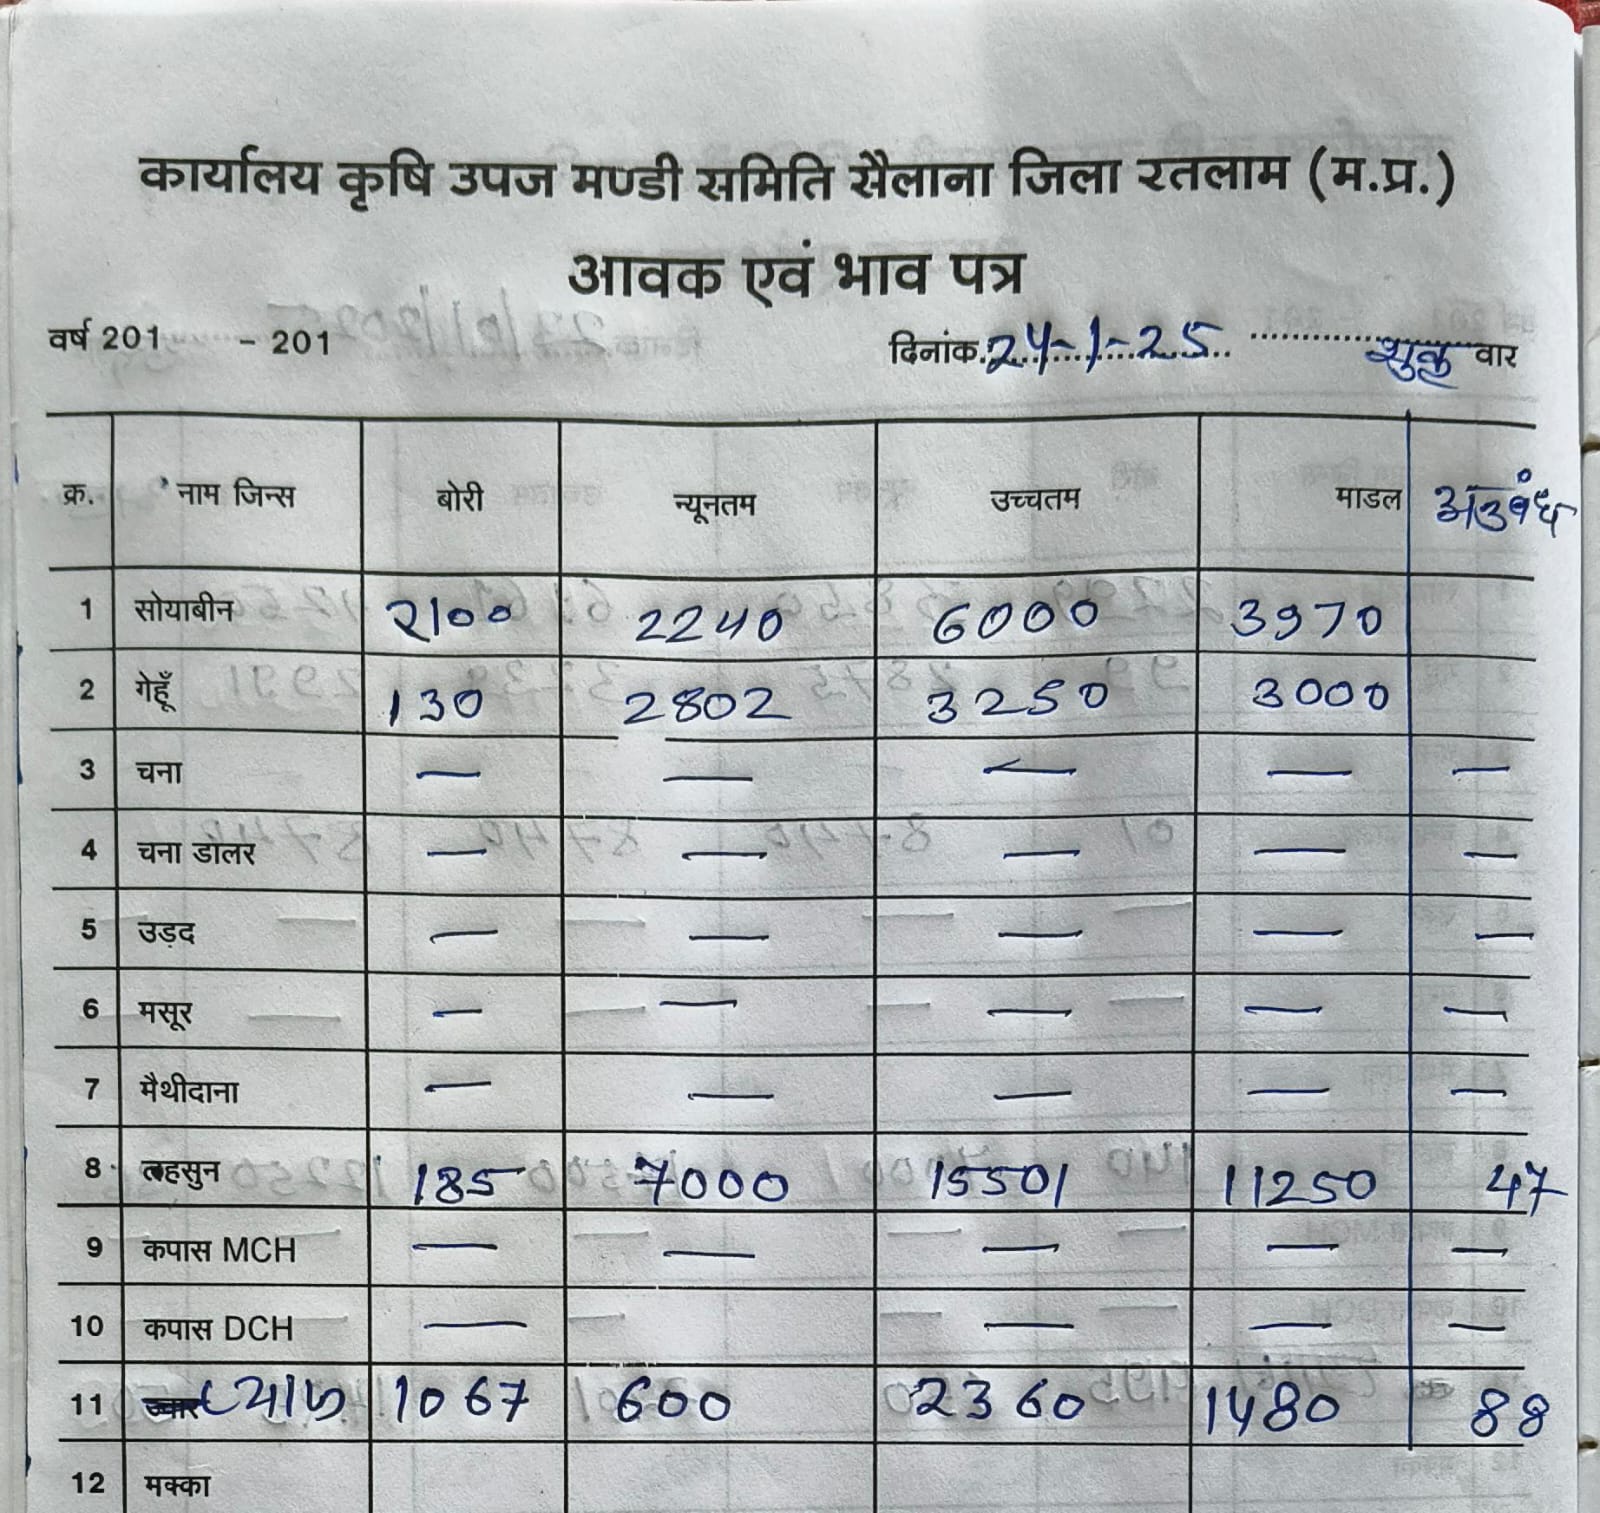 कार्यालय कृषि उपज मण्डी समिति सैलाना जिला रतलाम (म.प्र.)
आवक एवं भाव पत्र
वर्ष 201 - 201 दिनांक 24-1-25 शुक्र वार
क्र. नाम जिन्स बोरी न्यूनतम उच्चतम माडल अनुबंध
1 सोयाबीन 2100 2240 6000 3970
2 गेहूँ 130 2802 3250 3000
3 चना — — — — —
4 चना डालर — — — — —
5 उड़द — — — — —
6 मसूर — — — — —
7 मैथीदाना — — — — —
8 लहसुन 185 7000 15501 11250 47
9 कपास MCH — — — — —
10 कपास DCH — — — —
11 प्याज 1067 600 2360 1480 88
12 मक्का